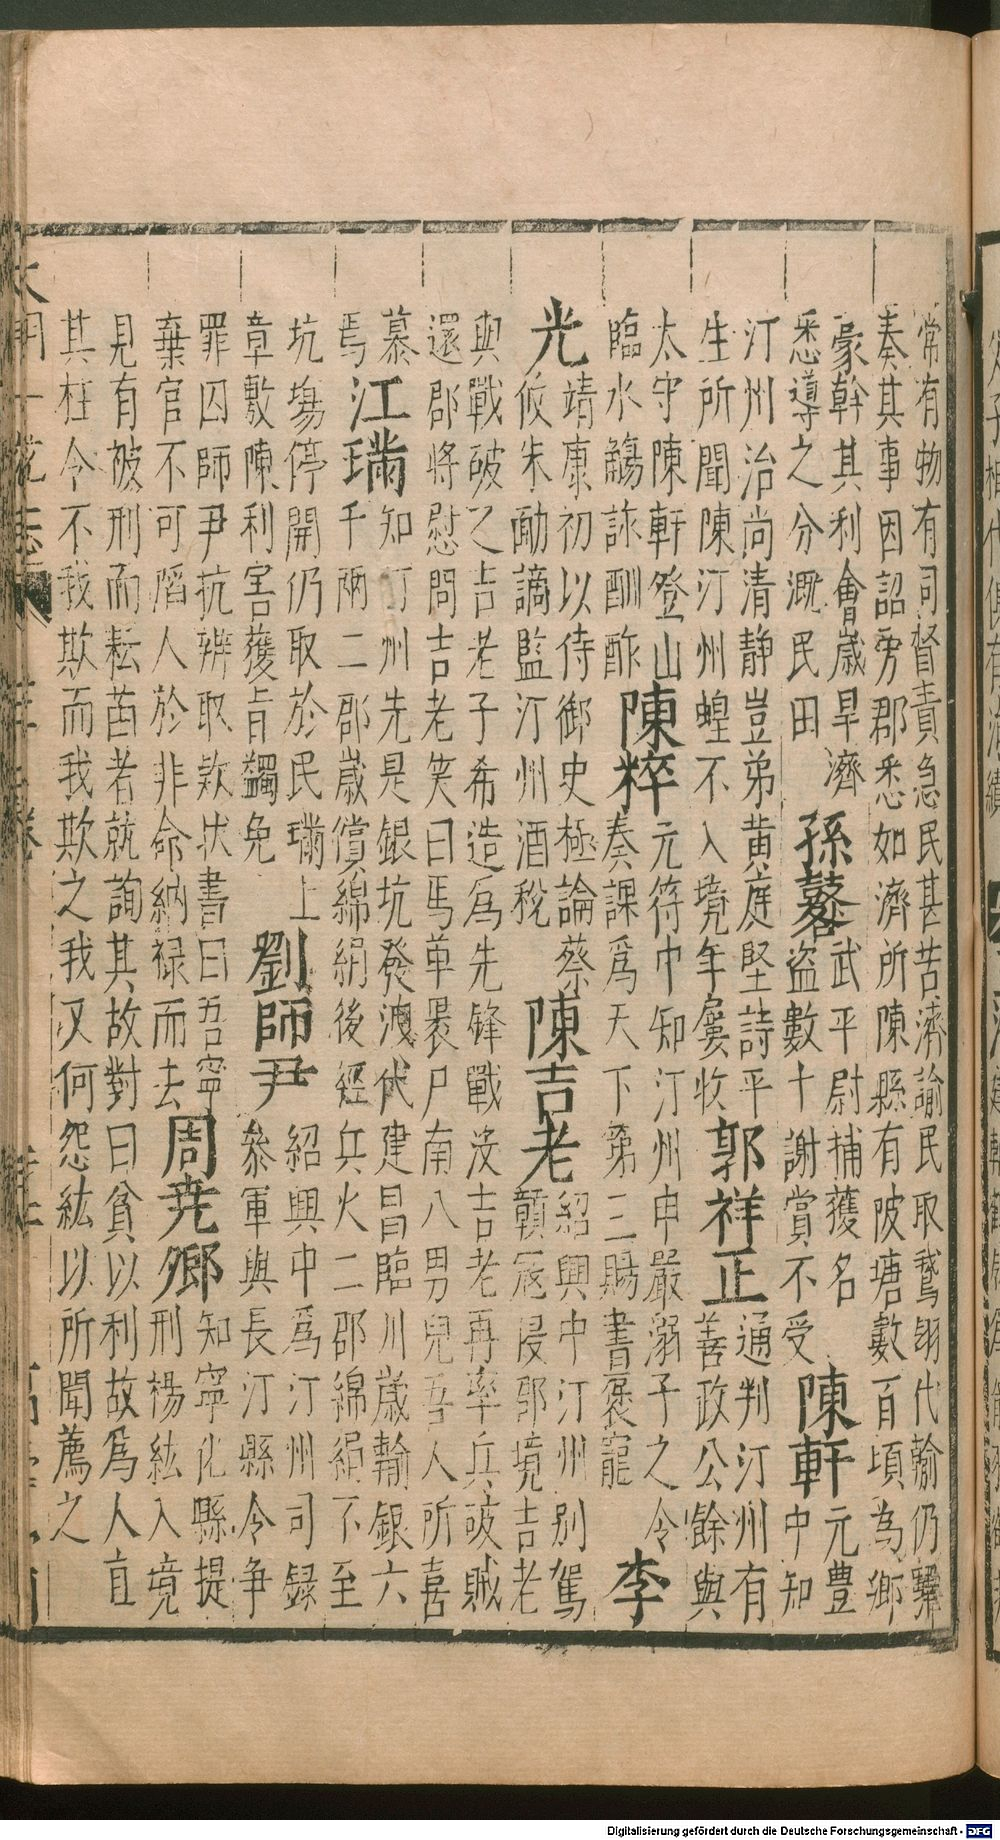 常有物有司督責急民甚苦濟諭民取鵞翎代輸仍
奏其事因詔旁郡悉如濟所陳縣有陂塘數百頃為鄉
豪幹其利會歲旱濟
悉導之分溉民田
孫
武平尉捕獲名
盜數十謝賞不受
陳軒
元豊
中知
汀州治尚清静豈弟黄庭堅詩平
生所聞陳汀州蝗不入境年屢收
郭祥正
通判汀州有
善政公餘與
太守陳軒登山
臨水觴詠酬酢
陳粹
元符中知汀州申嚴溺子之令
奏課爲天下第三賜書褒寵
李
光
靖康初以侍御史極論蔡
攸朱勔謫監汀州酒税
陳吉老
紹興中汀州别駕
贑宼侵郡境吉老
與戰破之吉老子希造爲先鋒戰没吉老再率兵破賊
還郡將慰問吉老笑曰馬革褁尸南八男兒吾人所喜
慕
焉
江璊
知汀州先是銀坑發洩代建昌臨川歲輸銀六
千兩二郡歲償綿絹後經兵火二郡綿絹不至
坑塲停開仍取於民璊上
章敷陳利害獲旨蠲免
劉師尹
紹興中爲汀州司録
叅軍與長汀縣令争
罪囚師尹抗辨取欵状書曰吾寜
棄官不可陷人於非命納禄而去
周尭卿
知寧化縣提
刑楊紘入境
見有被刑而耘苗者就詢其故對曰貧以利故爲人直
其枉令不我欺而我欺之我又何怨紘以所聞薦之
Digitalisierung gefördert durch die Deutsche Forschungsgemeinschaft - DFG